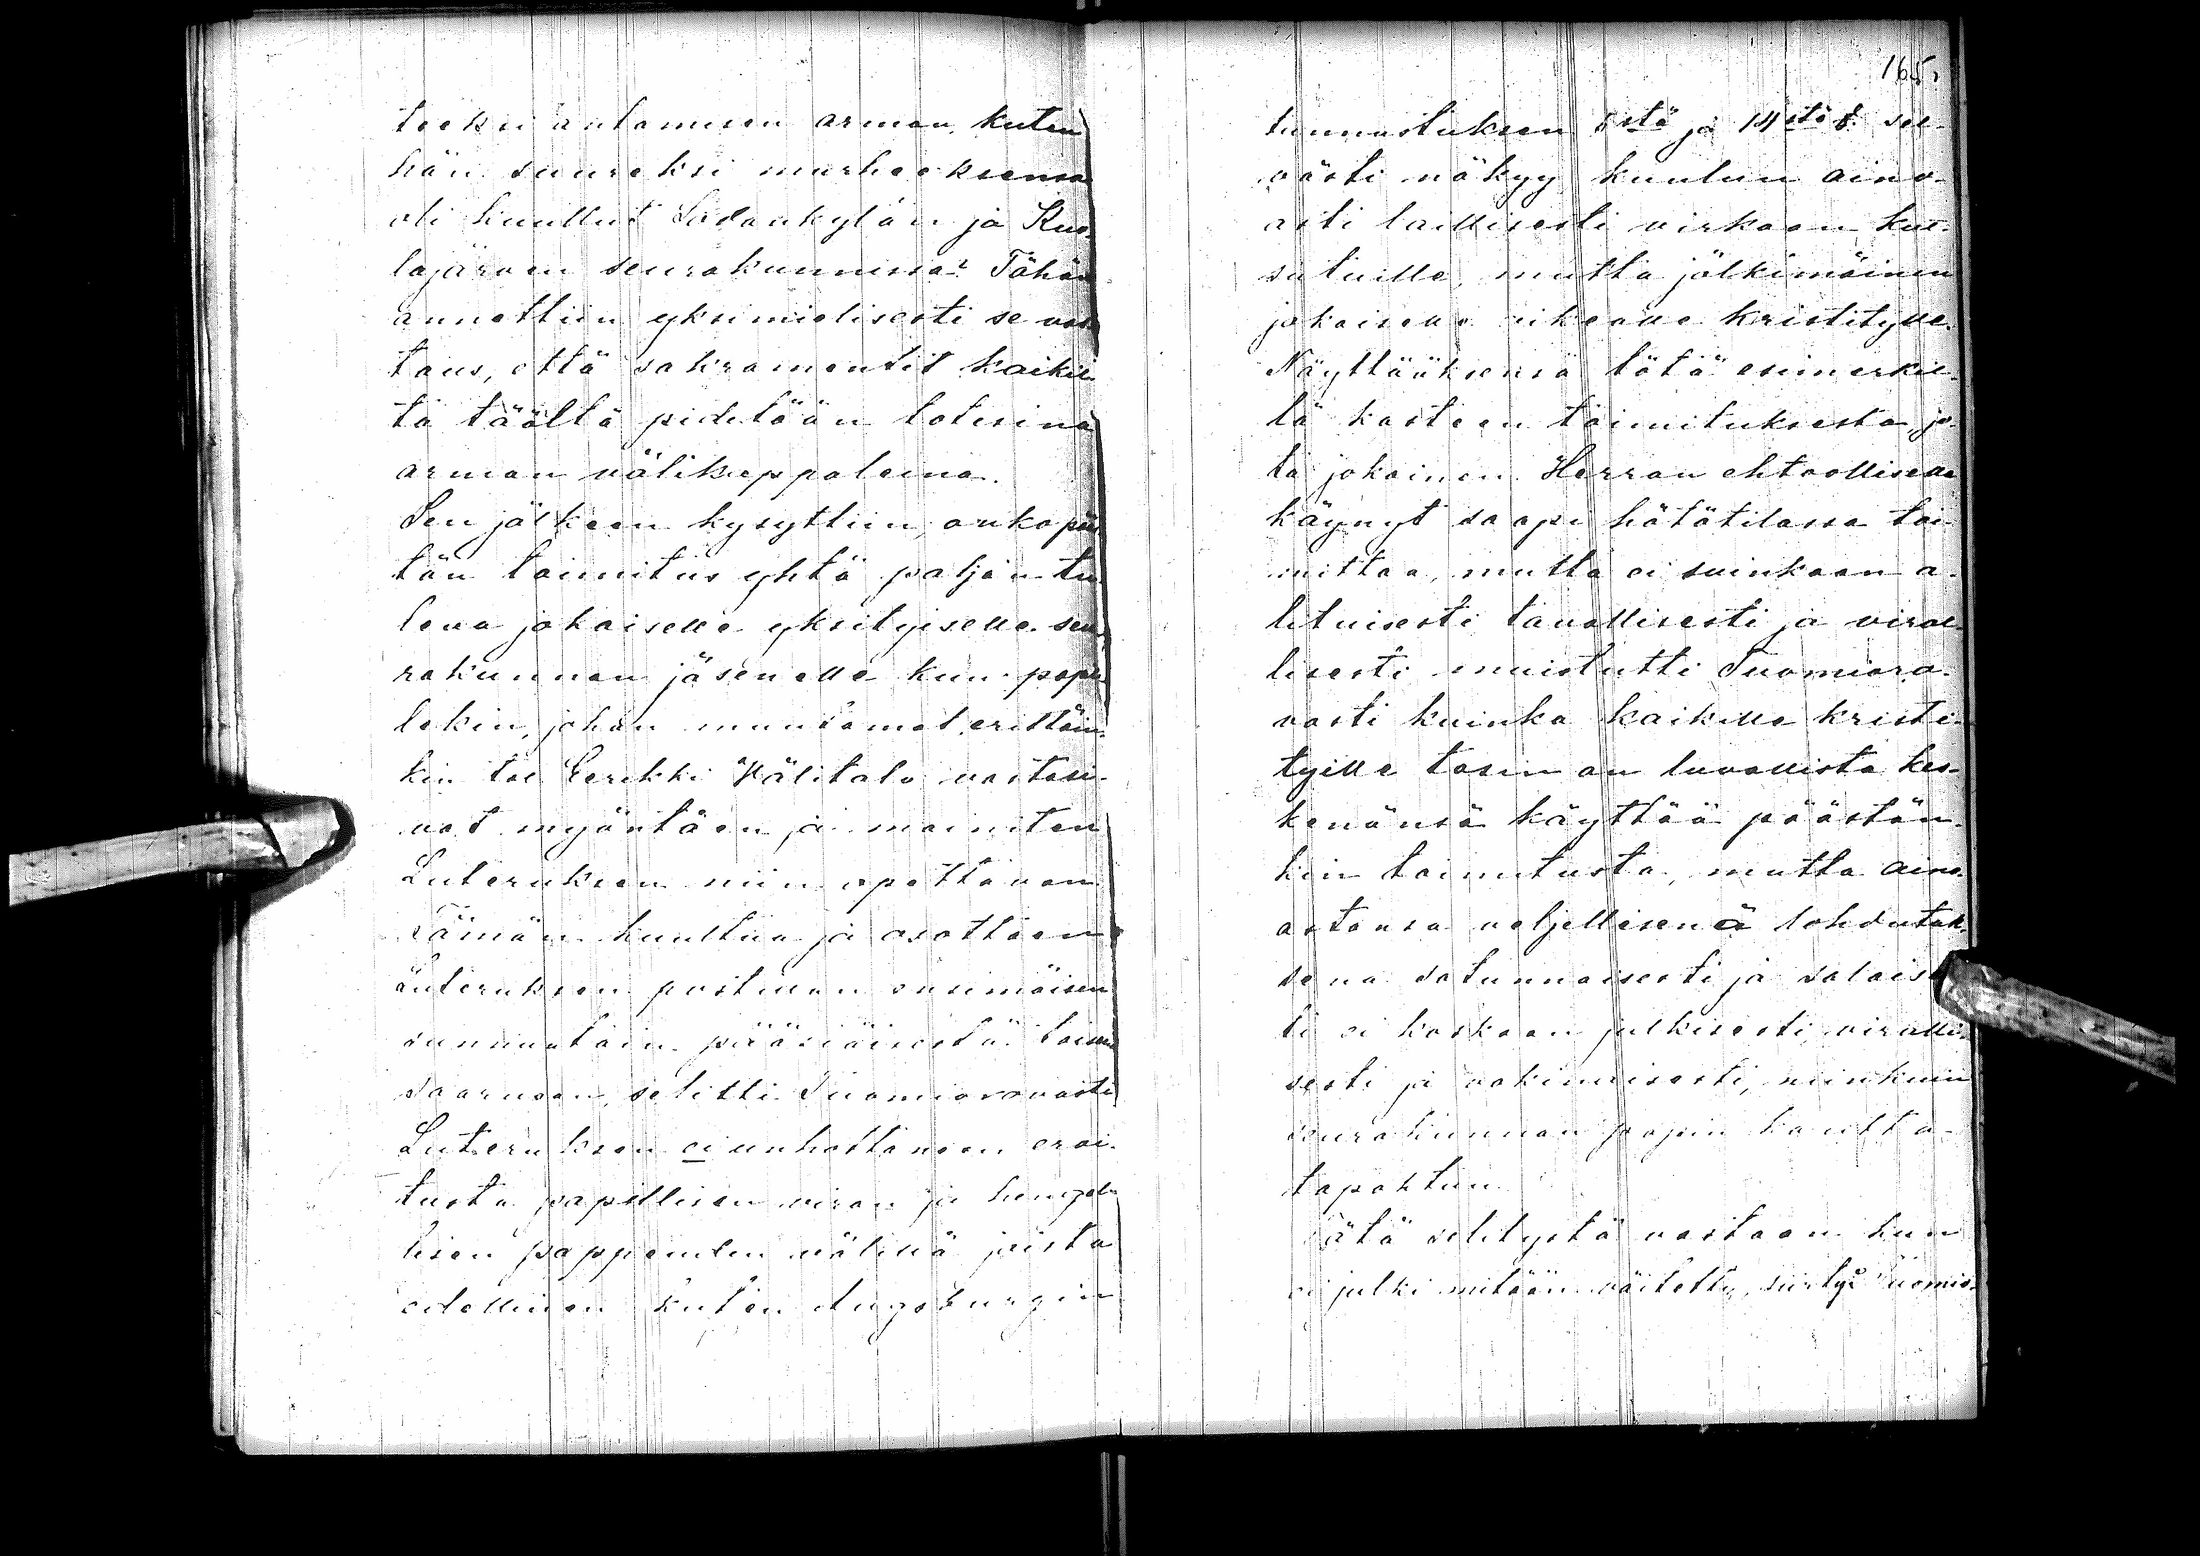 teeksi antamisen armon, kuten
hän suureksi murheeksensa
oli kuullut Sodankylän ja Kuo-
lajärven seurakunnissa? Tähän
annettiin yksimielisesti se vas-
taus, että sakramentit kaikil-
ta täältä pidetään totisina
armon välikappaleina.
Sen jälkeen kysyttiin, onko pääs-
tön toimitus yhtä paljon tu-
leva jokaiselle yksityiselle seu-
rakunnan jäsenelle kuin papil-
lekin, johon muutamat, erittäin-
kin tal. Eerikki Välitalo vastasi-
vat myöntäen ja mainiten
Luteruksen niin opettavan.
Tämän kuultua ja osottaen
Luteruksen postillan ensimäisen
sunnuntain pääsiäisestä toiseen
saarnaan, selitti Tuomiorovasti
Luteruksen ei unhottaneen eroi-
tusta papillisen viran ja hengel-
lisen pappeuden välillä joista
edellinen kuten Augsburgin
165.
tunnustuksen 5stä ja 14stä §. sel-
västi näkyy kuuluu aino-
asti laillisesti virkaan kut-
sutuille, mutta jälkimäinen
jokaiselle oikealle kristitylle.
Näyttääksensä tätä esimerkil-
lä kasteen toimituksesta, jo-
ta jokainen Herran ehtoollisella
käynyt saapi hätätilassa toi-
mittaa, mutta ei suinkaan a-
lituisesti tavallisesti ja viral-
lisesti muistutti Tuomioro-
vasti kuinka kaikille kristi-
tyille tosin on luvallista kes-
kenänsä käyttää päästön-
kin toimitusta, mutta aino-
astansa veljellisenä lohdutuk-
sena satunnaisesti ja salaises-
ti ei koskaan julkisesti, viralli-
sesti ja vakinaisesti, niinkuin
seurakunnan papin kautta
tapahtuu.
Tätä selitystä vastaan kun
ei julki mitään väitetty, siirtyi Tuomio-